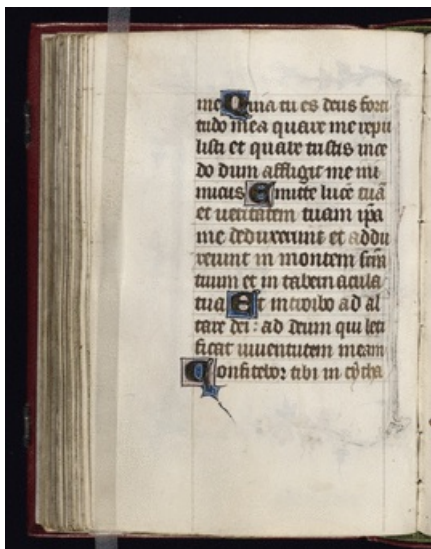 me Quia tu es deus forti
tudo mea quare me repu
listi et quare tristis ince
do dum affligit me ini
micus Emitte lucē tuā
et veritatem tuam ipa
me deduxerunt et addu
xerunt in montem scm̄
tuum et in tabernacula
tua Et introibo ad al
tare dei : ad deum qui leti
ficat iuuentutem meam
Confitebor tibi in cytha